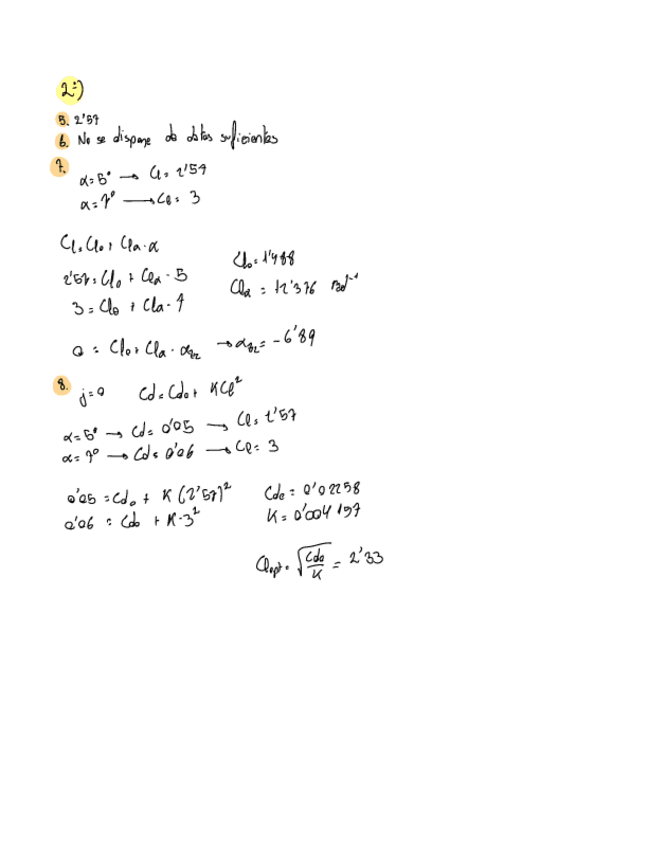 2º)
5. 2'57
6. No se dispone de datos suficientes
7.
α = 5° → Cl = 2'57
α = 7° → Cl = 3
Cl = Cl0 + Clα · α
2'57 = Cl0 + Clα · 5
3 = Cl0 + Clα · 7
Cl0 = 1'488
Clα = 12'376 rad⁻¹
0 = Cl0 + Clα · → = -6'89
8. j = 0 Cd = Cd0 + KCl²
α = 5° → Cd = 0'05 → Cl = 2'57
α = 7° → Cd = 0'06 → Cl = 3
0'05 = Cd0 + K (2'57)²
0'06 = Cd0 + K · 3²
Cd0 = 0'02258
K = 0'004157
Clopt = √(Cd0/K) = 2'33